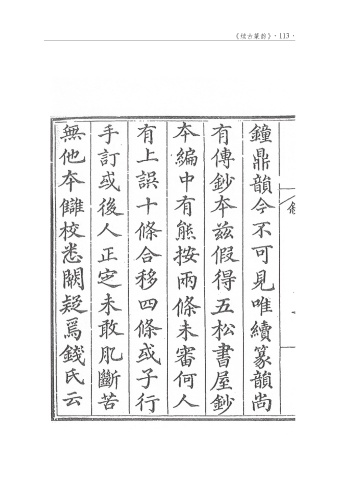 《续古篆韵》·113·
鐘鼎韻今不可見唯續篆韻尚
有傳鈔本兹假得五松書屋鈔
本編中有熊按兩條未審何人
有上誤十條合移四條或子行
手訂或後人正定未敢肊斷苦
無他本讎校悉闕疑焉錢氏云